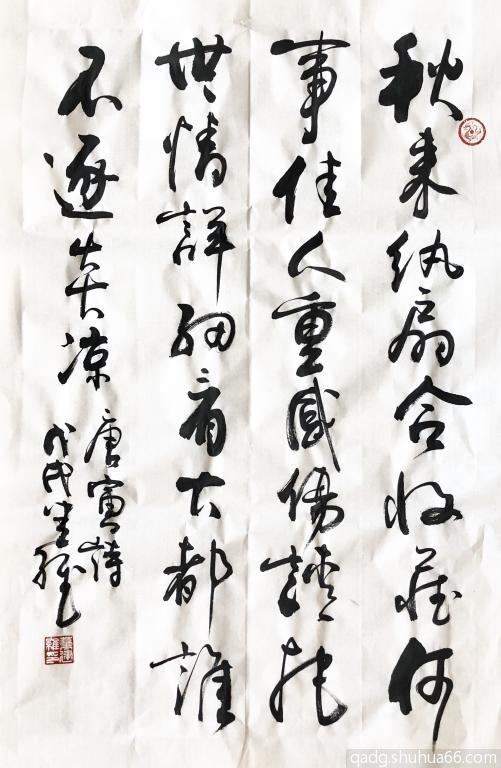 秋来纨扇合收藏何
事佳人重感傷請托
世情詳細看大都誰
不逐炎凉
唐寅詩
戊戌
qadg.shuhua66.com